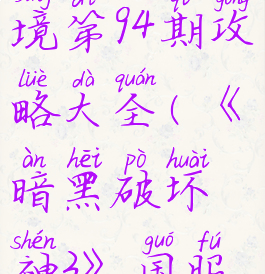 境第94期攻
lüè dà quán
略大全(《
àn hēi pò huài
暗黑破坏
shén guó fú
神3》国服